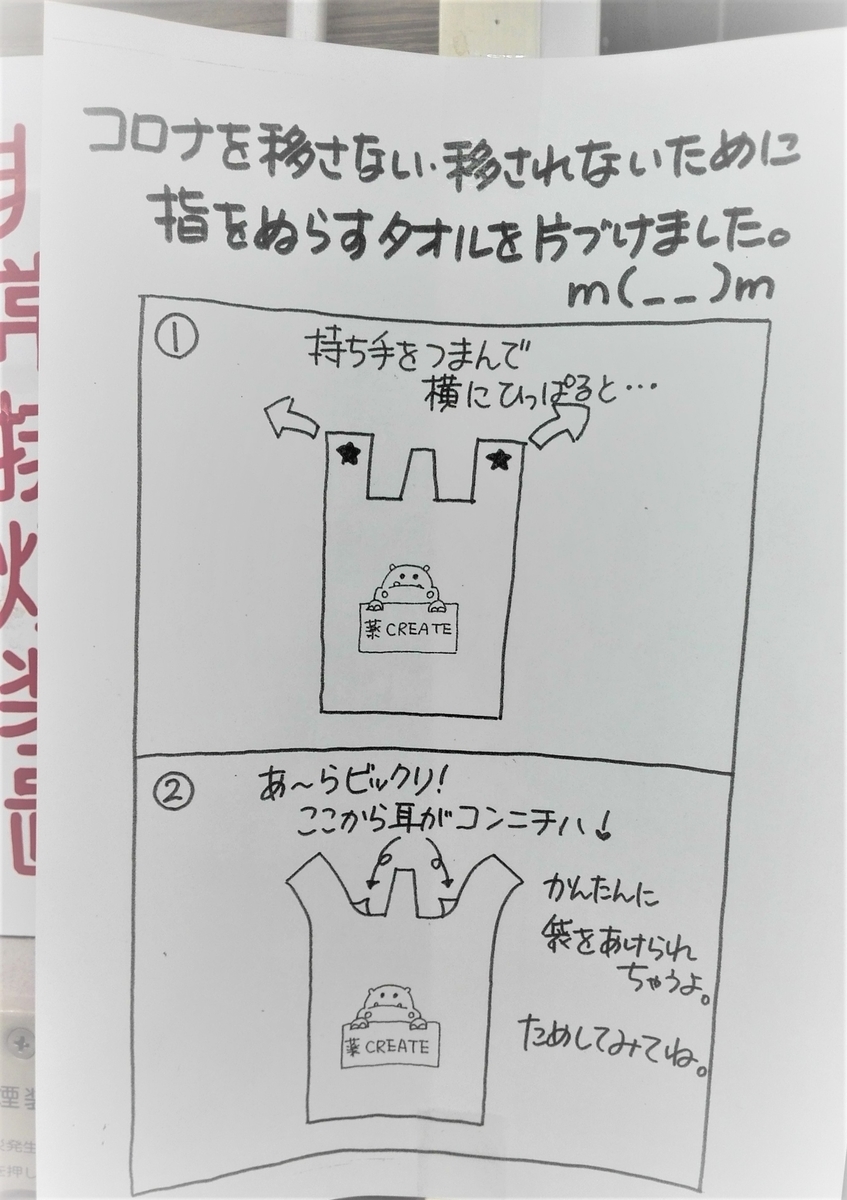 コロナを移さない・移されないために
指をぬらすタオルを片づけました。
m(__)m
①
持ち手をつまんで
横にひっぱると…
★ ★
薬 CREATE
②
あ〜らビックリ!
ここから耳がコンニチハ!
かんたんに
袋をあけられ
ちゃうよ。
ためしてみてね。
薬 CREATE